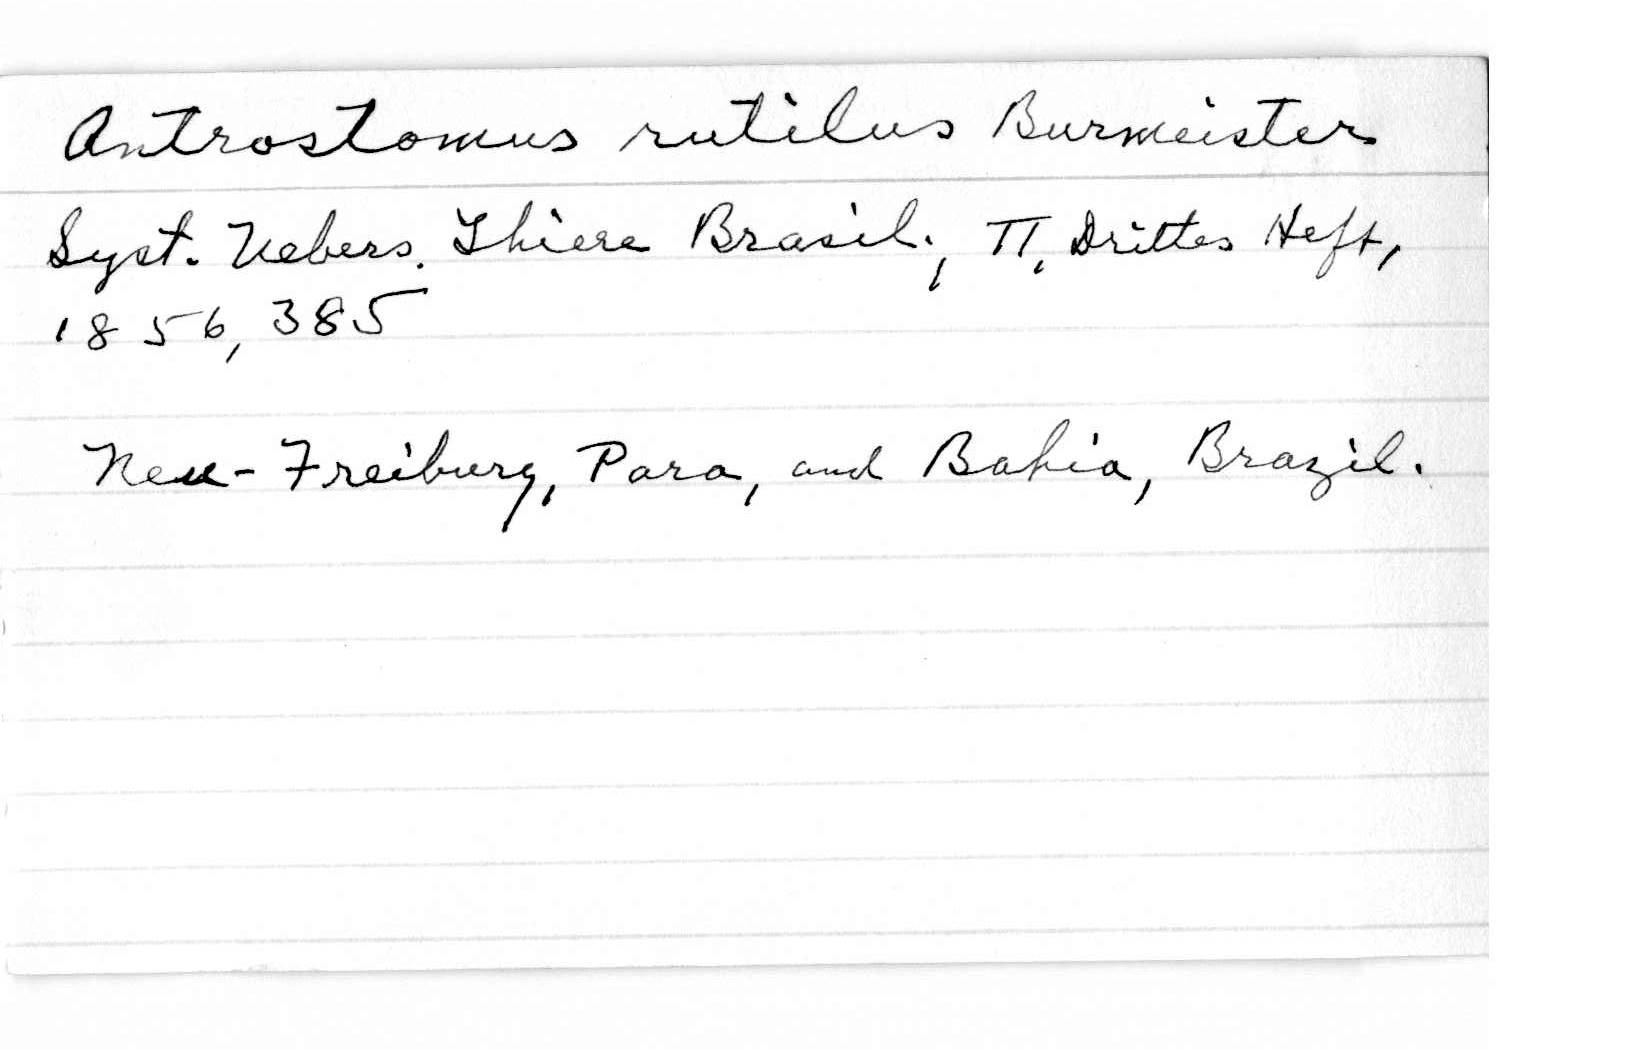 Antrostomus rutilus Burmeister
Syst. Uebers. Thiere Brasil., II, Drittes Heft,
1856, 385
Neu-Freiburg, Para, and Bahia, Brazil.